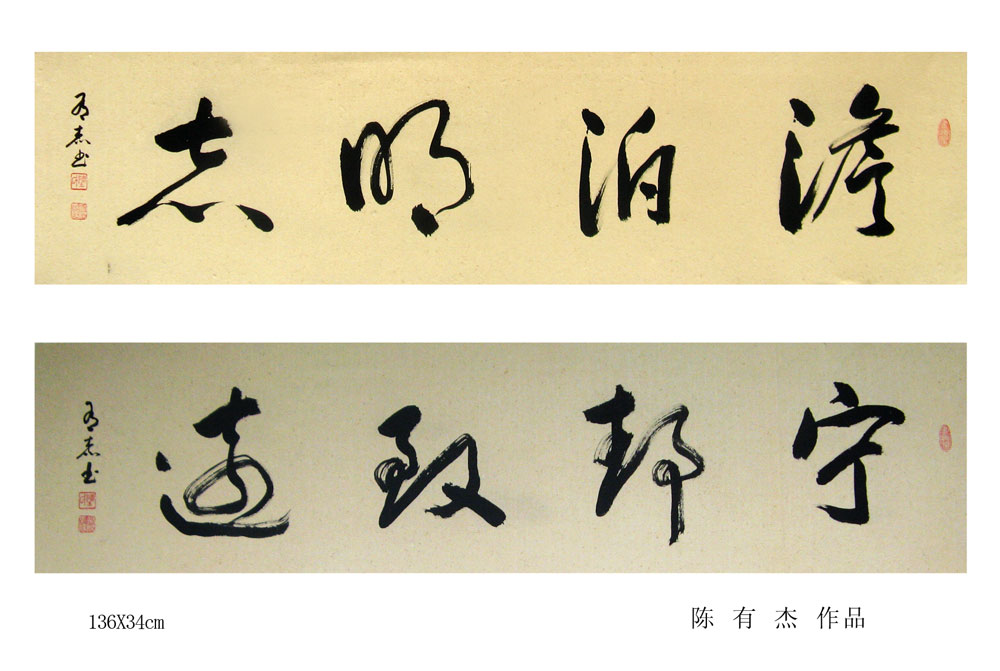 澹泊明志
有杰书
宁静致远
有杰书
136X34cm
陈有杰作品